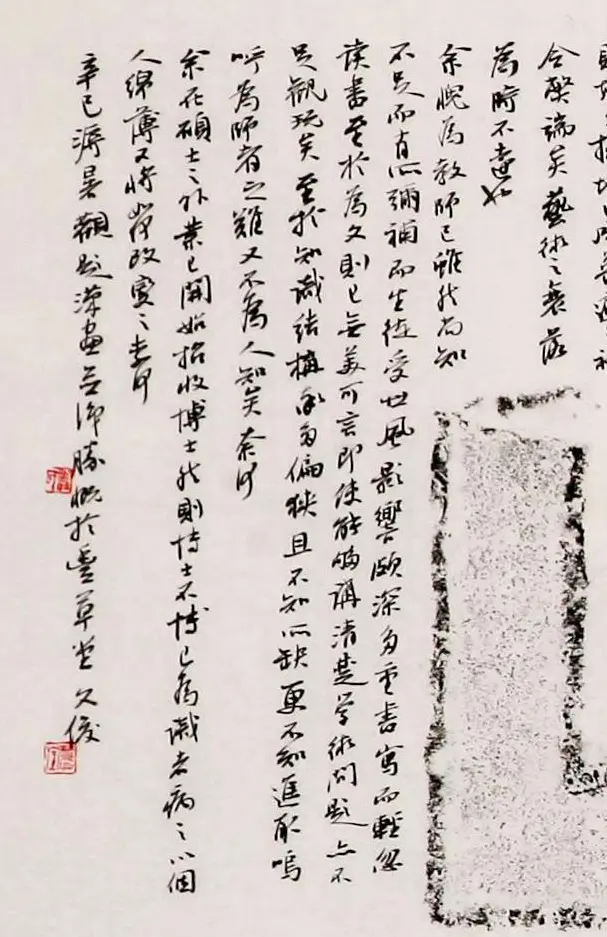 合弊端矣藝術之衰落
為時不遠
余愧為教師已雖我尚知
不足而有所彌補而生徒受世風影響頗深多重書寫而輕忽
读書至於為文則已無美可言即使能夠講清楚學術問題亦不
足觀玩矣至於知識結構亦多偏狹且不知所缺更不知進取嗚
呼為師者之難又不為人知矣奈何
余在碩士之外業已開始招收博士然則博士不博已為識者病之以個
人綿薄又將改變之奈何
辛巳溽暑觀題漢畫於豐草堂文俊